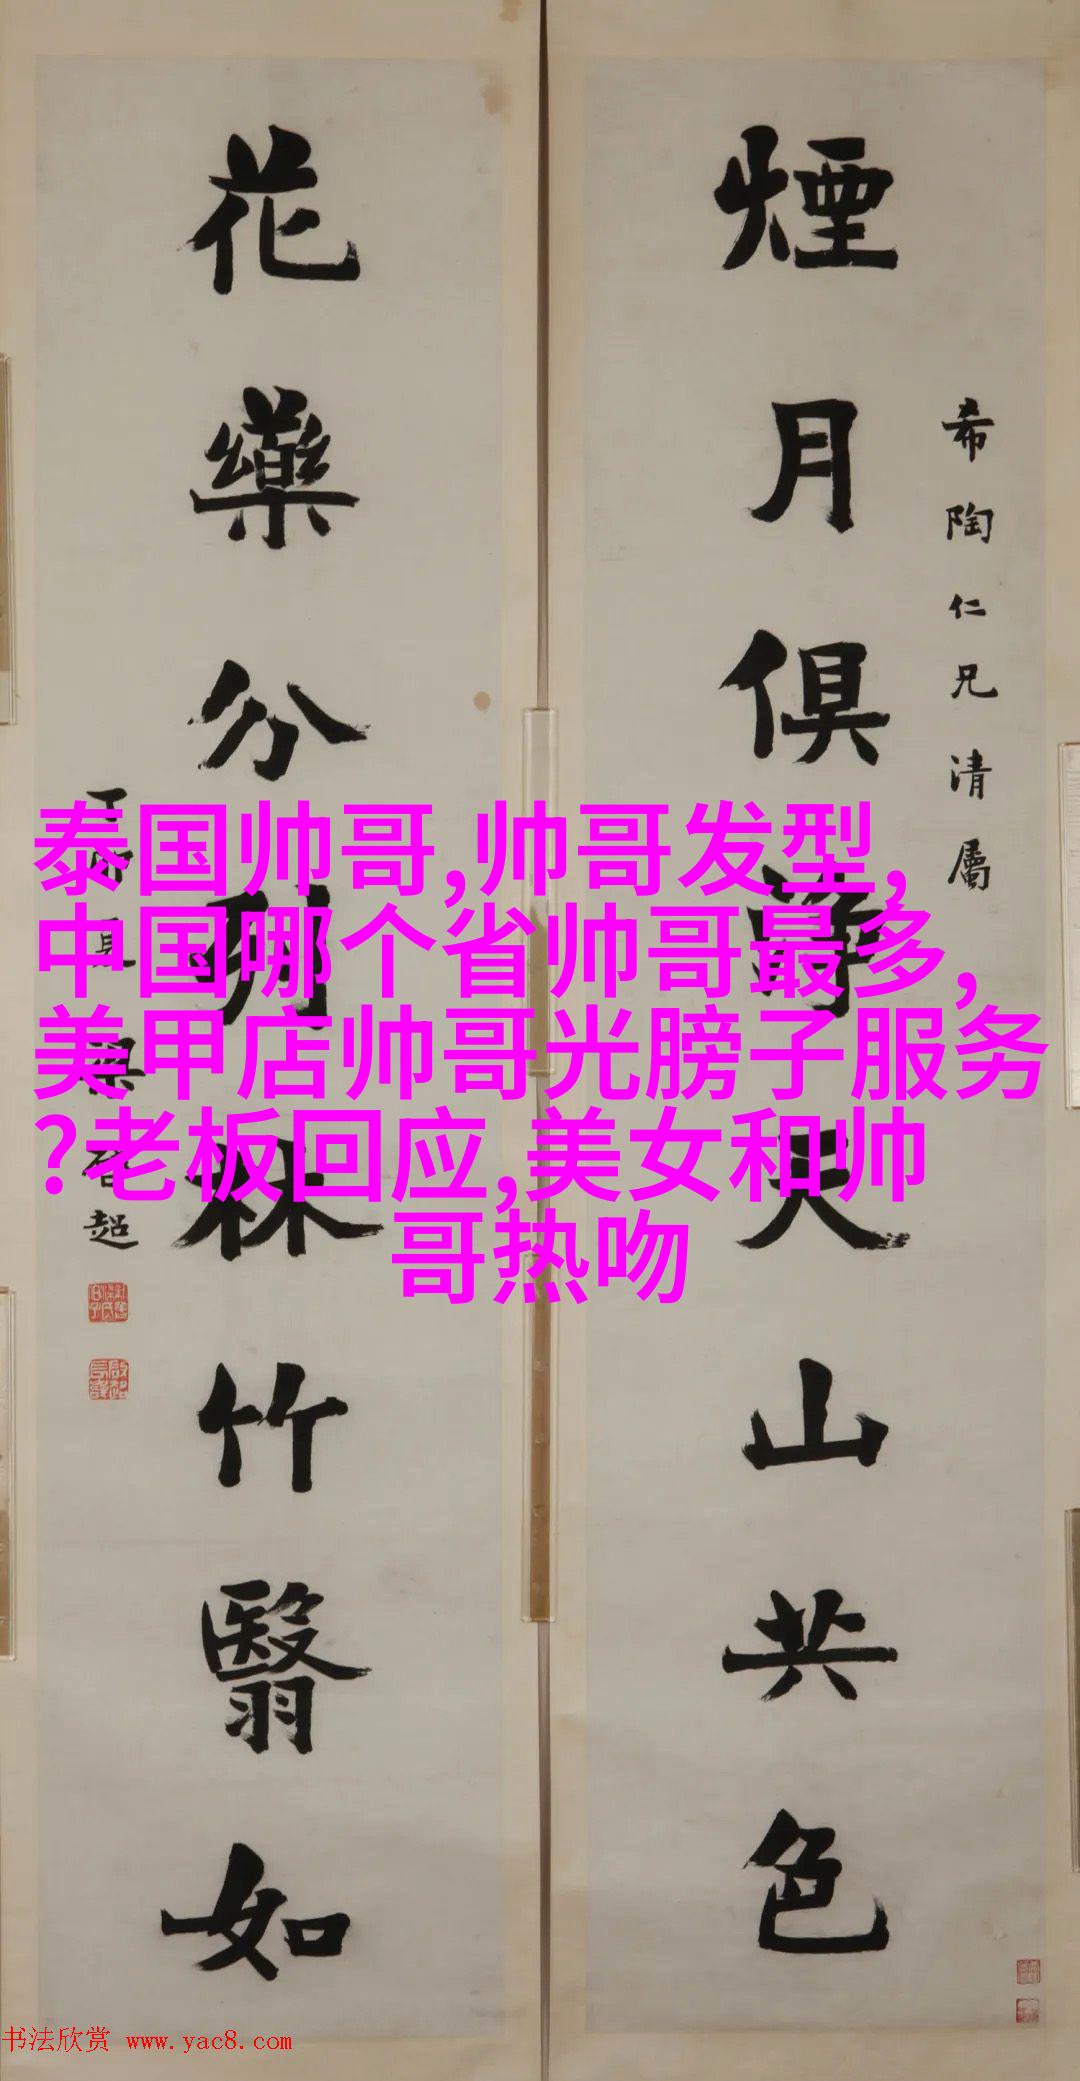 煙月俱靜天山共色
希陶仁兄清屬
花藥分列林竹翳如
超
泰国帅哥,帅哥发型,
中国哪个省帅哥最多,
美甲店帅哥光膀子服务
?老板回应,美女和帅
哥热吻
书法欣赏 www.yac8.com